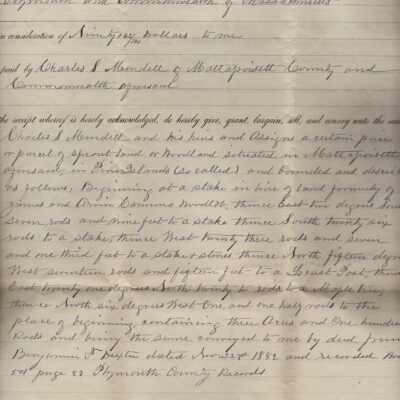 Plymouth and Commonwealth of Massachusetts
in consideration of Ninety six Dollars to me
paid by Charles S. Mendell of Mattapoisett County and
Commonwealth aforesaid
the receipt whereof is hereby acknowledged, do hereby give, grant, bargain, sell, and convey unto the said
Charles S. Mendell and his heirs and Assigns a certain piece
or parcel of sprout land or Woodland situated in Mattapoisett
aforesaid, in Pine Islands (so called) and bounded and
as follows; Beginning at a stake in line of land formerly of
and Woodlot, thence East ten degrees
Seven rods and nine feet to a stake thence South twenty six
rods to a stake, thence West twenty three rods and seven
and one third feet to a stake & stones thence North fifteen
West seventeen rods and fifteen feet to a Post, thence
East twenty one degrees North twenty to rods to a Maple tree,
thence North six degrees West One and one half rods to the
place of beginning, containing three Acres and One hundred
Rods and being the same conveyed to me by deed from
Benjamin F. Dexter dated Nov 22d 1882 and recorded
page 52 Plymouth County Records